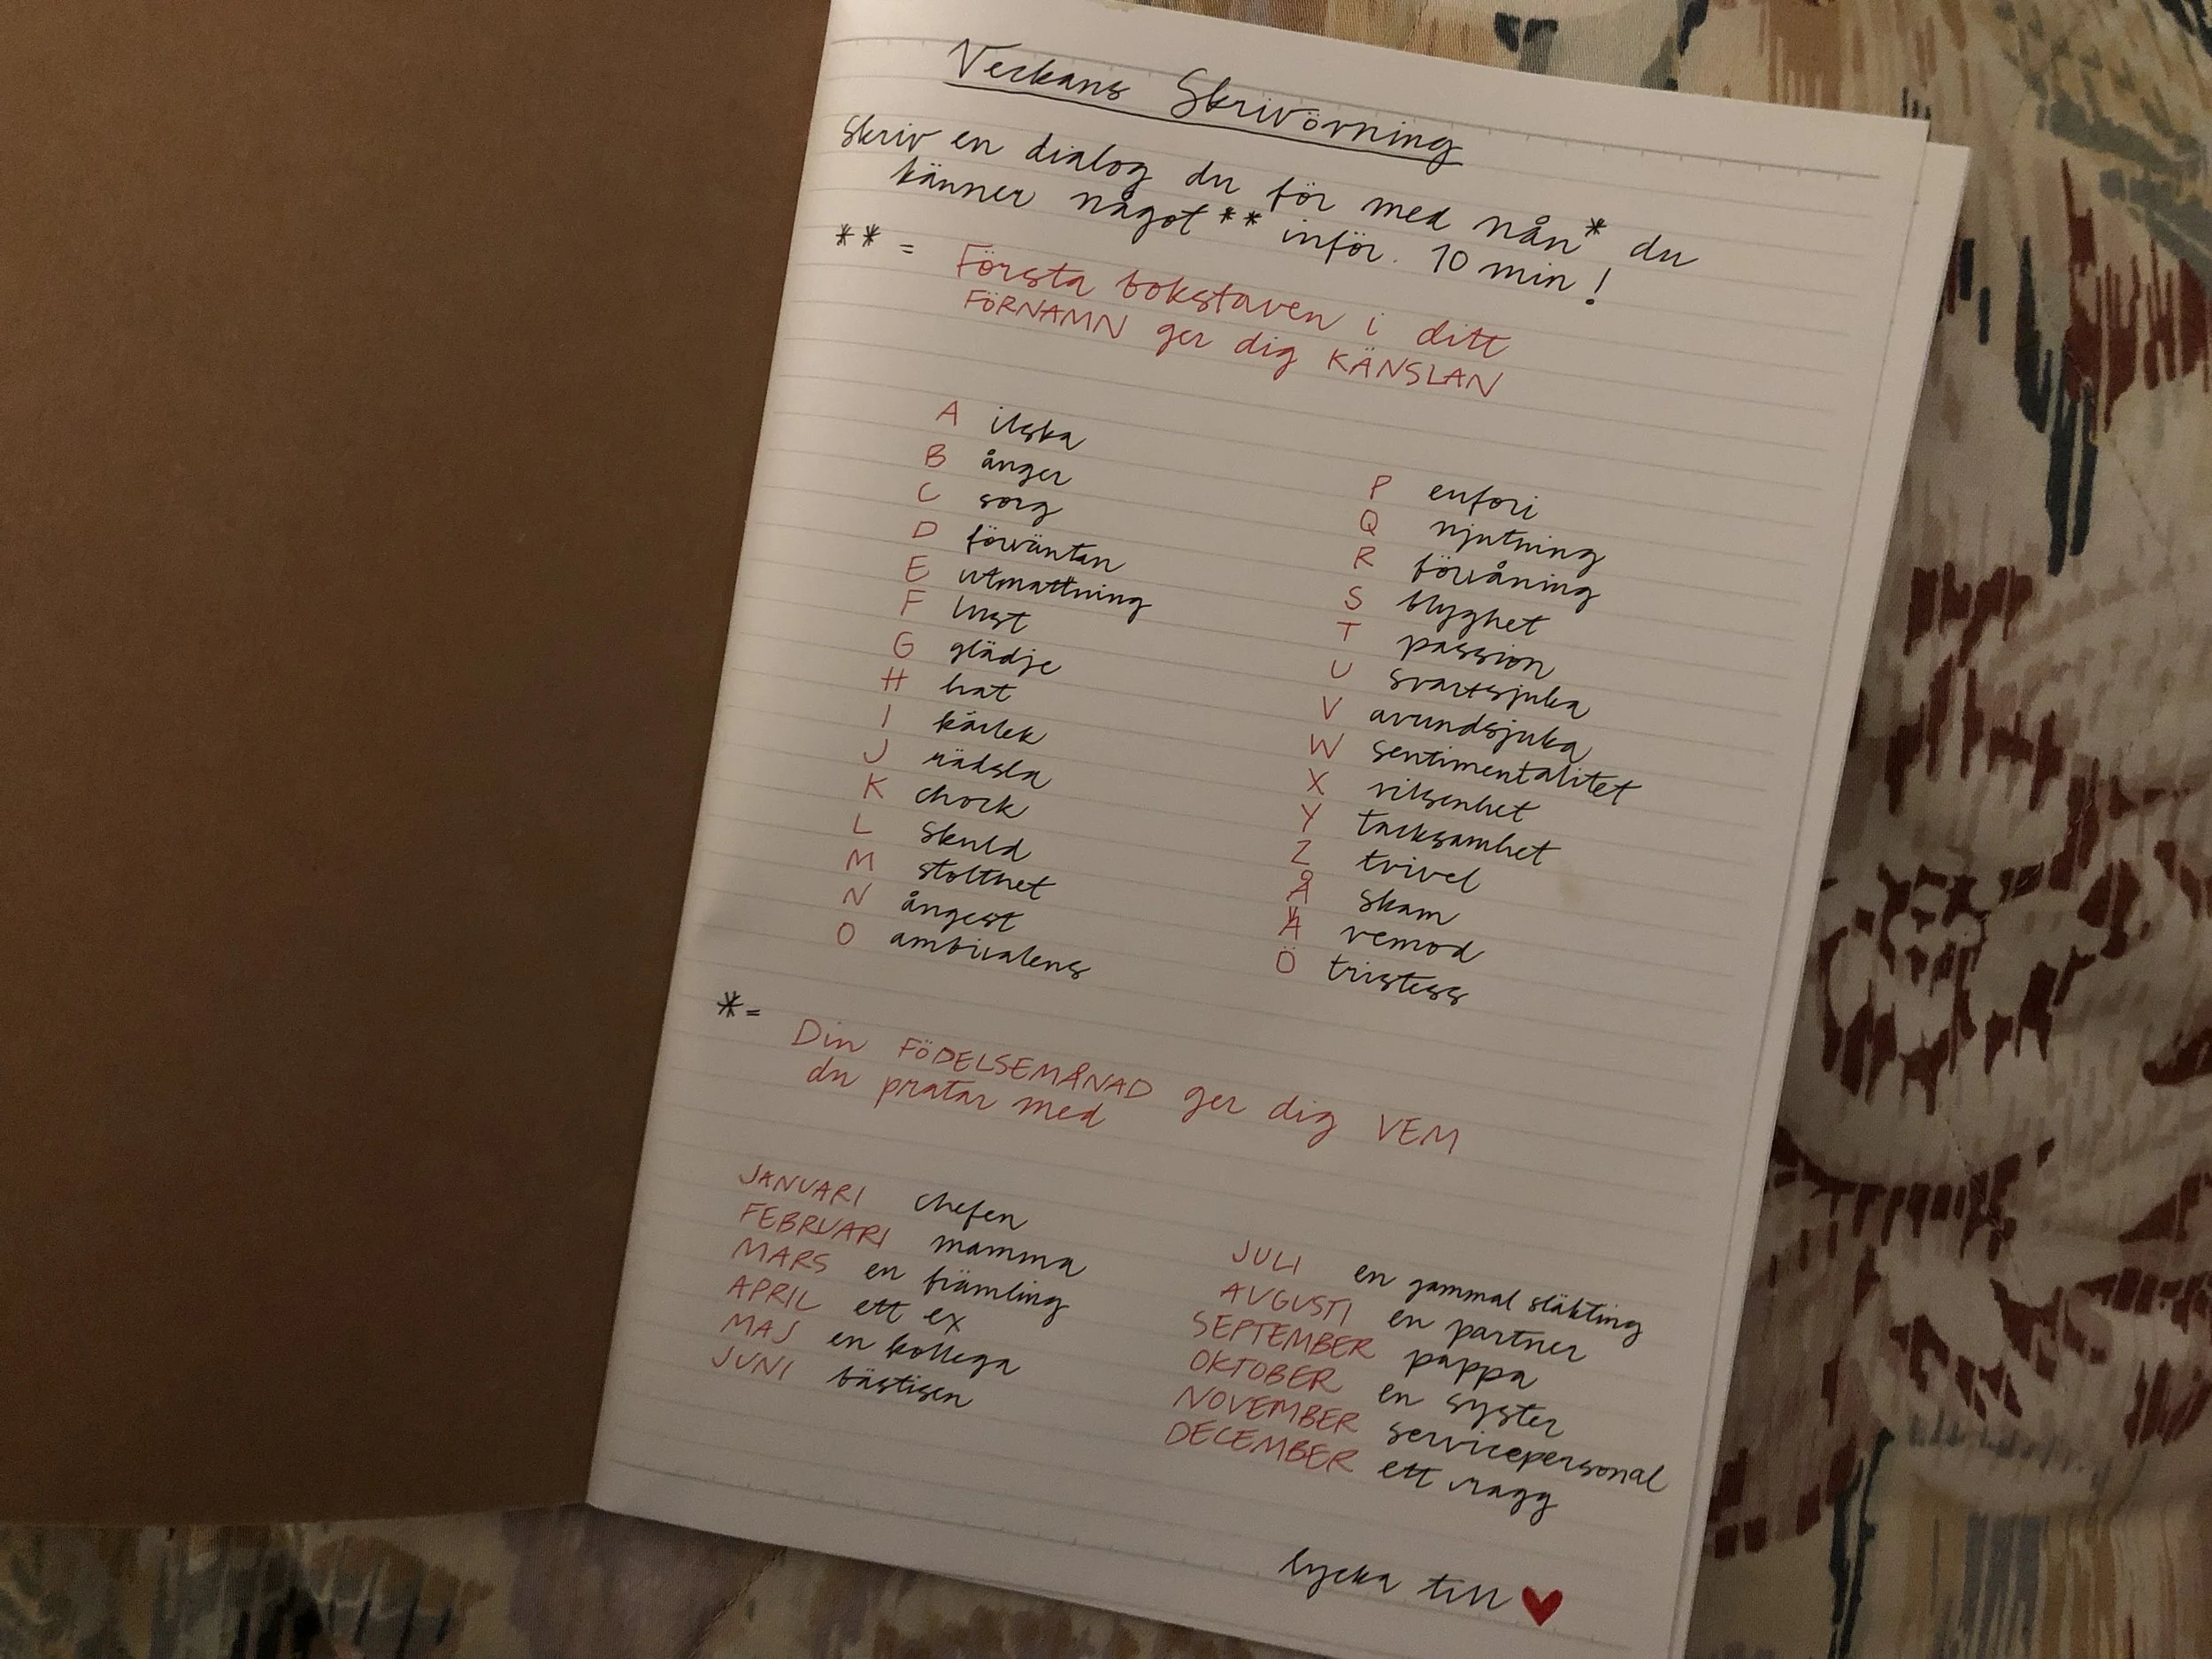 Veckans Skrivövning
Skriv en dialog du för med nån* du
känner något** inför. 10 min!
** = Första bokstaven i ditt
FÖRNAMN ger dig KÄNSLAN
A ilska
B ånger
C sorg
D förväntan
E utmattning
F lust
G glädje
H hat
I kärlek
J rädsla
K chock
L skuld
M stolthet
N ångest
O ambivalens
P eufori
Q njutning
R förvåning
S blyghet
T passion
U svartsjuka
V avundsjuka
W sentimentalitet
X vilsenhet
Y tacksamhet
Z tvivel
Å skam
Ä vemod
Ö tristess
*= Din FÖDELSEMÅNAD ger dig VEM
du pratar med
JANUARI chefen
FEBRUARI mamma
MARS en främling
APRIL ett ex
MAJ en kollega
JUNI bästisen
JULI en gammal släkting
AUGUSTI en partner
SEPTEMBER pappa
OKTOBER en syster
NOVEMBER servicepersonal
DECEMBER ett ragg
lycka till ♥